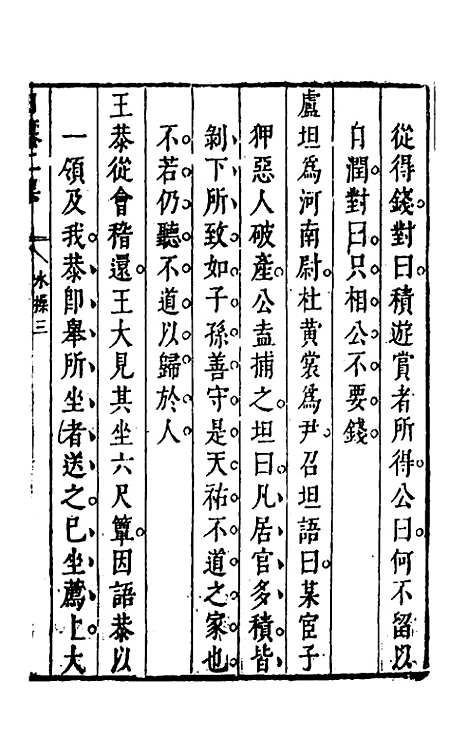 從得錢對曰積遊賞者所得公曰何不留以
自潤對曰只相公不要錢
盧坦爲河南尉杜黃裳爲尹召坦語曰某宦子
狎惡人破產公盍捕之坦曰凡居官多積皆
剝下所致如子孫善守是天祐不道之家也
不若仍聽不道以歸於人
王恭從會稽還王大見其坐六尺簟因語恭以
一領及我恭卽舉所坐者送之已坐薦上大
氷操三